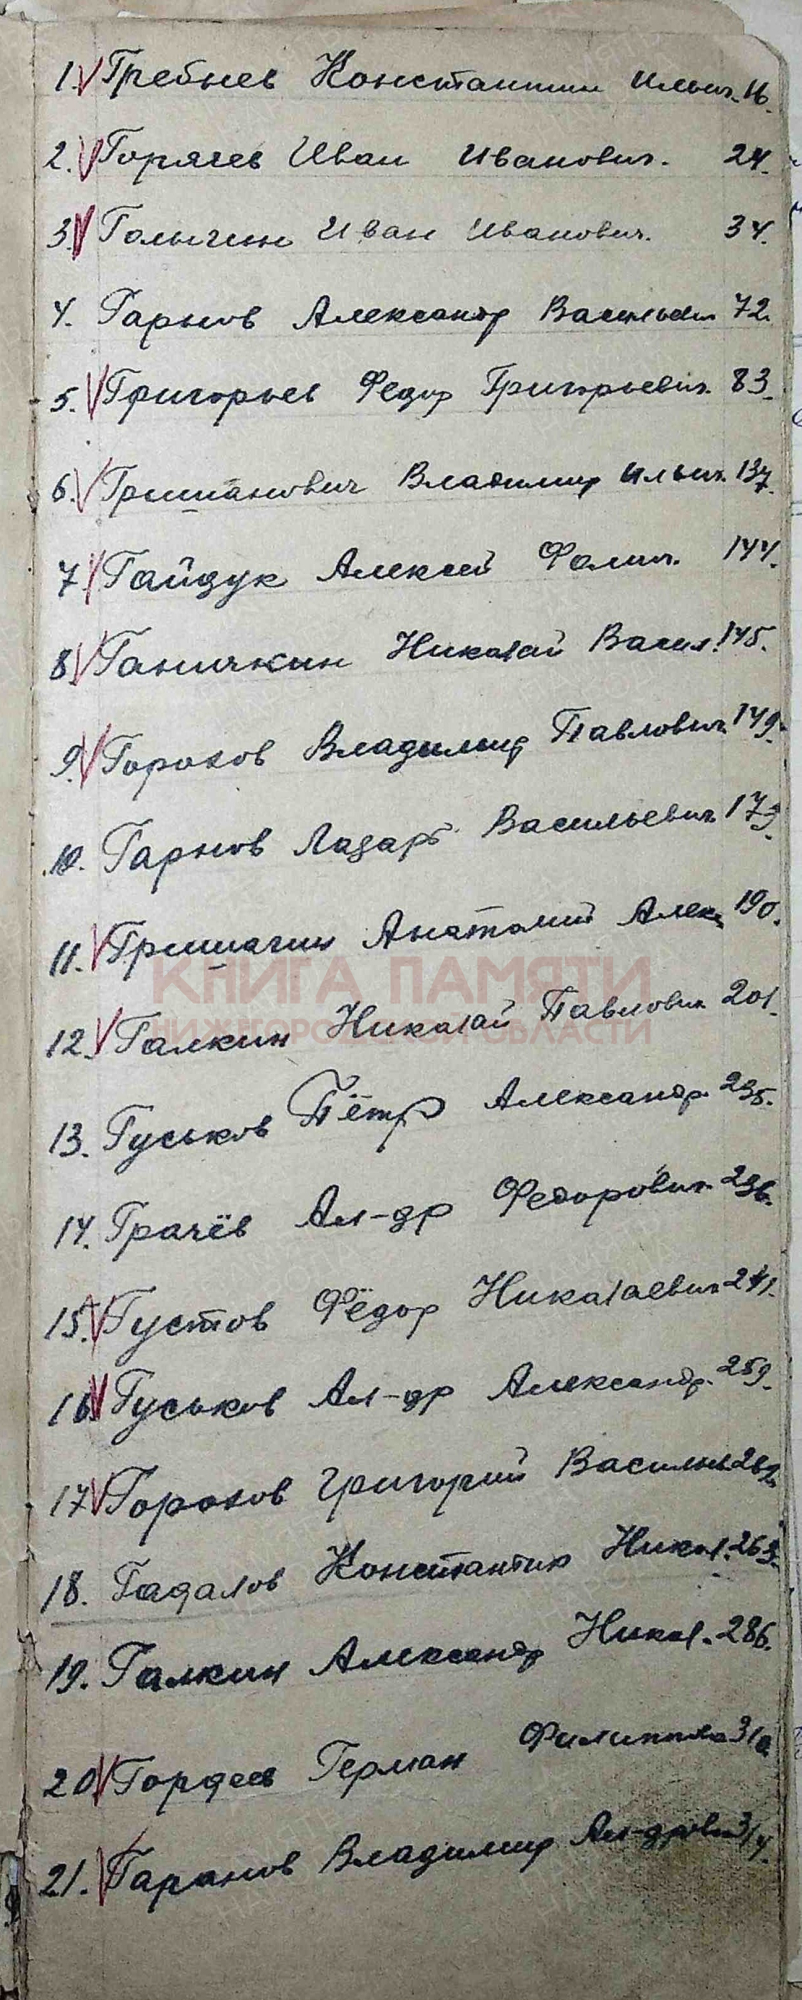 1. Гребнев Константин Ильич. 16.
2. Горячев Иван Иванович. 24.
3. Голыгин Иван Иванович. 34.
4. Гарнов Александр Васильевич 72.
5. Григорьев Федор Григорьевич. 83.
6. Гришанович Владимир Ильич. 137.
7. Гайдук Алексей Фомич. 144.
8. Ганичкин Николай Васил. 145.
9. Горохов Владимир Павлович. 149.
10. Гарнов Лазарь Васильевич 173.
11. Гришагин Анатолий Алек. 190.
КНИГА ПАМЯТИ
12. Галкин Николай Павлович 201.
НИЖЕГОРОДСКОЙ ОБЛАСТИ
13. Гуськов Пётр Александр. 235.
14. Грачёв Ал-др Федорович. 236.
15. Густов Фёдор Николаевич 241.
16. Гуськов Ал-др Александр. 259.
17. Горохов Григорий Василье 262.
18. Гадалов Константин Никол. 263.
19. Галкин Александр Никол. 286.
20. Гордеев Герман Филиппов 310.
21. Гаранов Владимир Ал-дрови 314.